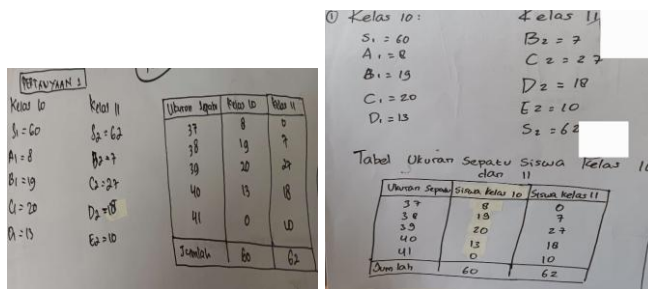 PERTANYAAN 1
Kelas 10
S₁ = 60
A₁ = 8
B₁ = 19
C₁ = 20
D₁ = 13
Kelas 11
S₂ = 62
B₂ = 7
C₂ = 27
D₂ = 18
E₂ = 10
Ukuran Sepatu Kelas 10 Kelas 11
37 8 0
38 19 7
39 20 27
40 13 18
41 0 10
Jumlah 60 62
① Kelas 10 :
S₁ = 60
A₁ = 8
B₁ = 19
C₁ = 20
D₁ = 13
Kelas 11
B₂ = 7
C₂ = 27
D₂ = 18
E₂ = 10
S₂ = 62
Tabel Ukuran Sepatu Siswa Kelas 10
dan 11
Ukuran Sepatu Siswa Kelas 10 Siswa Kelas 11
37 8 0
38 19 7
39 20 27
40 13 18
41 0 10
Jumlah 60 62